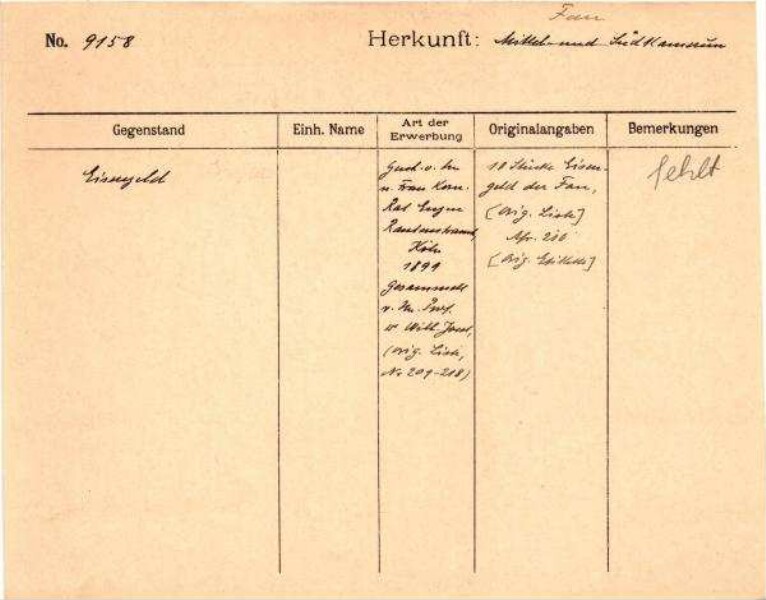 Fan
No. 9158 Herkunft: Mittel- und Süd Kamerun
Gegenstand Einh. Name Art der Erwerbung Originalangaben Bemerkungen
Eisengeld
Gesch. v. Hn
u. Frau Kom.
Rat Eugen
Rautenstrauch,
Köln
1899
Gesammelt
v. Hn. Prof.
Wilh. Joest,
(Orig. Liste,
No 209-218)
10 Stücke Eisen-
geld der Fan,
[Orig. Liste]
Afr. 210
[Orig. Etikette]
fehlt